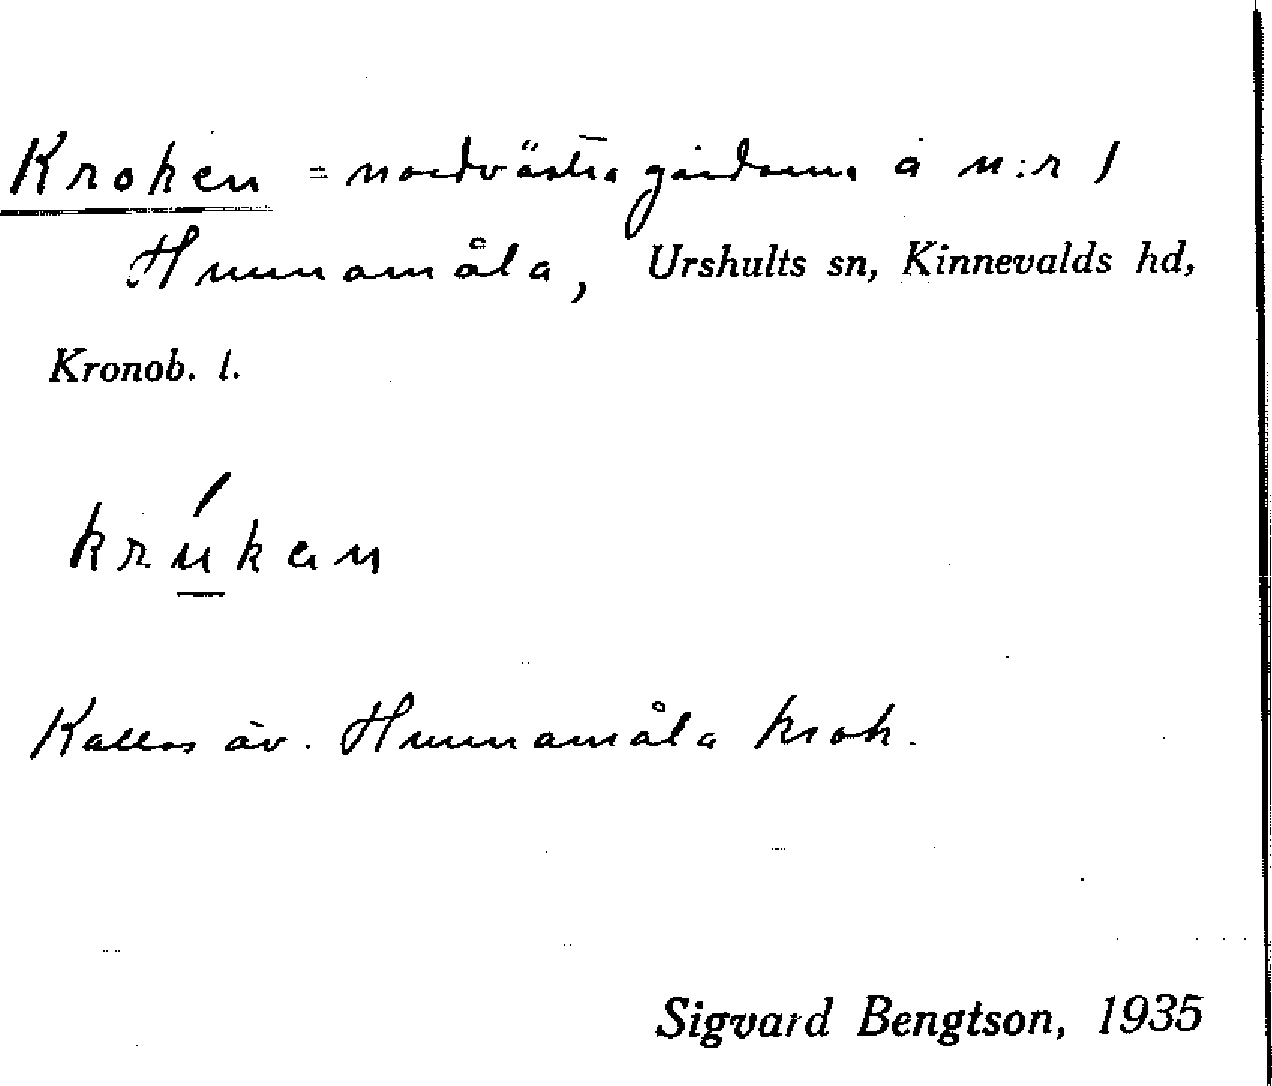 Kroken = nordvästra gårdarna å n:r 1
Hunnamåla, Urshults sn, Kinnevalds hd,
Kronob. l.
krúkan
Kallas äv. Hunnamåla krok.
Sigvard Bengtson, 1935